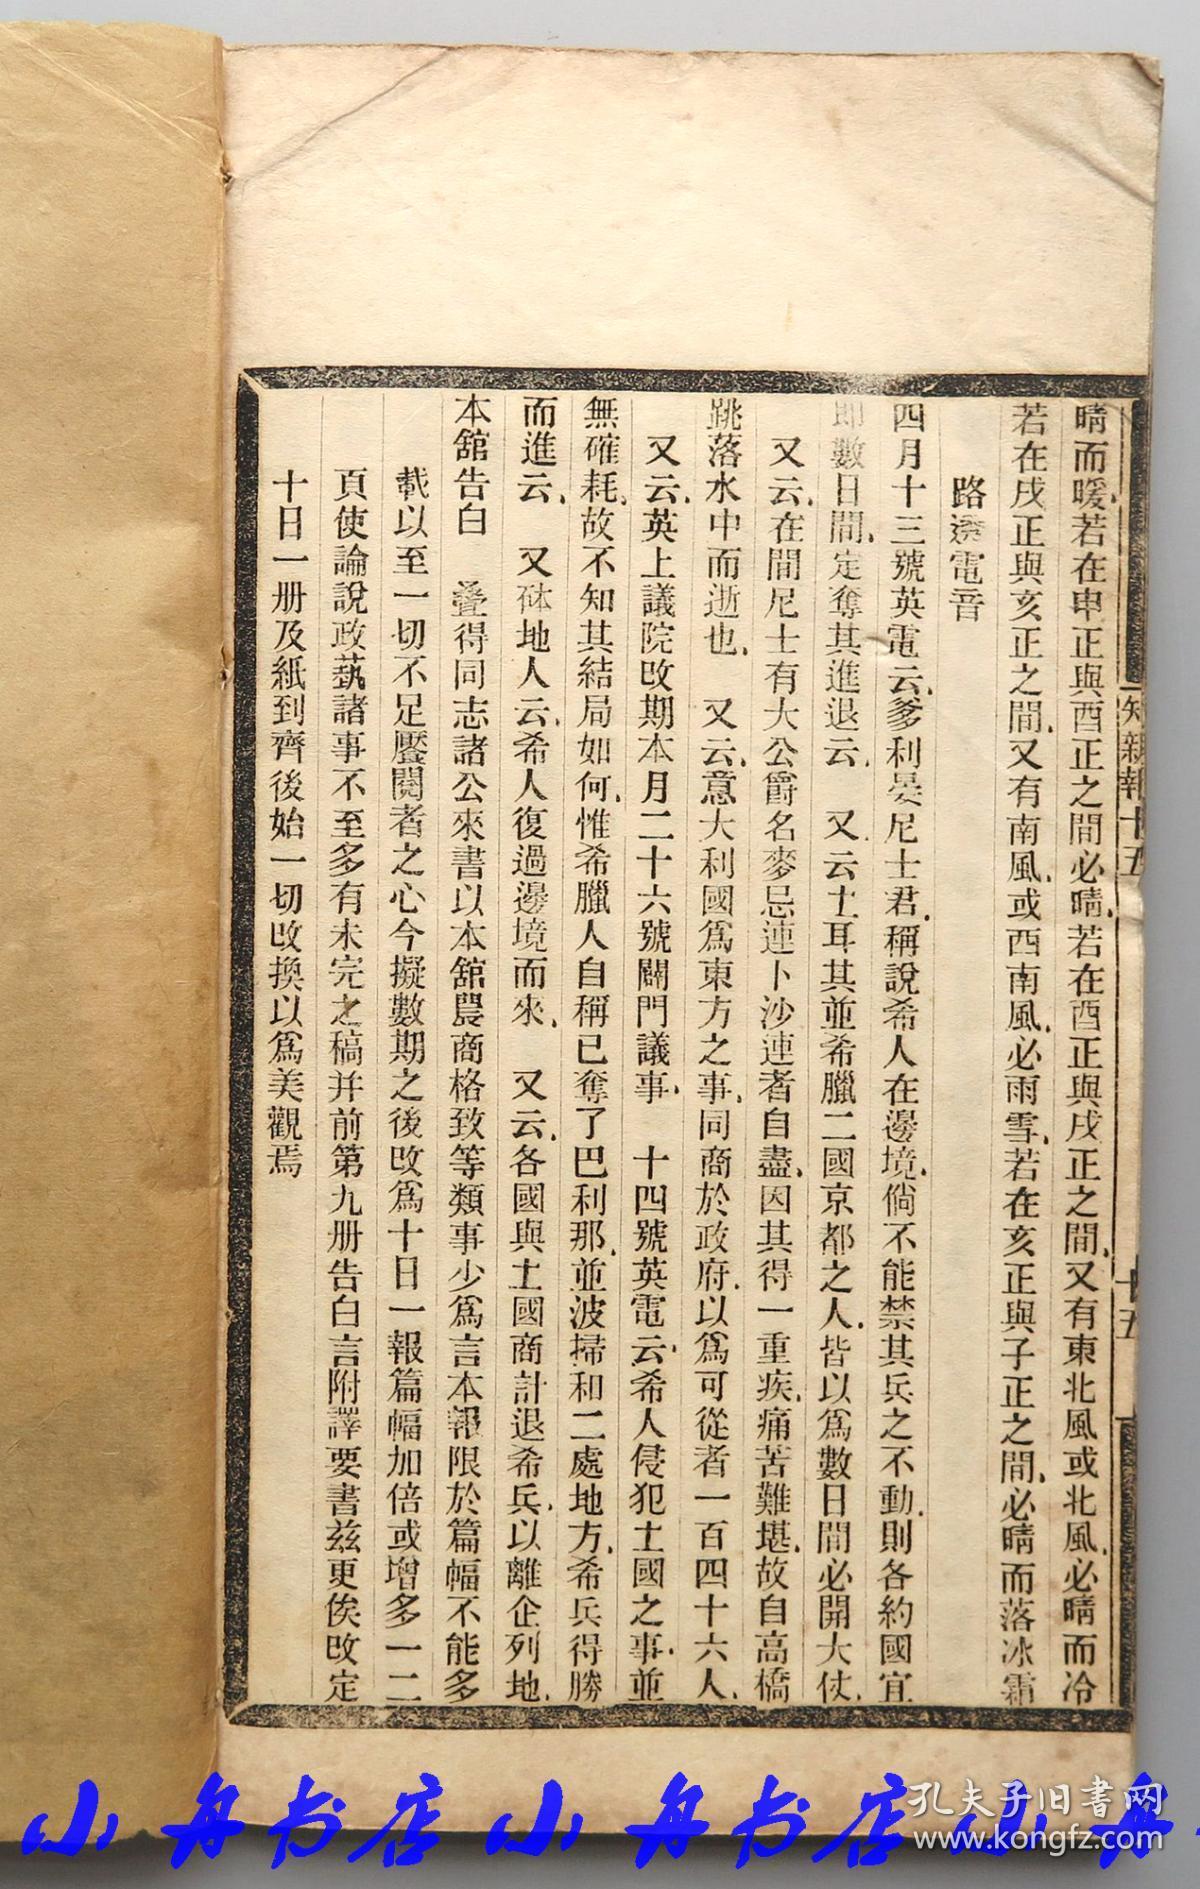 晴而暖、若在申正與酉正之間必晴、若在酉正與戌正之間、又有東北風或北風、必晴而冷
若在戌正與亥正之間、又有南風、或西南風、必雨雪、若在亥正與子正之間、必晴而落冰霜
路透電音
四月十三號英電云、爹利晏尼士君、稱說希人在邊境、倘不能禁其兵之不動、則各約國宜
即數日間、定奪其進退云、　又云土耳其並希臘二國京都之人、皆以爲數日間必開大仗、
又云、在間尼士有大公爵名麥忌連卜沙連者自盡、因其得一重疾、痛苦難堪、故自高橋
跳落水中而逝也、　又云、意大利國爲東方之事、同商於政府、以爲可從者一百四十六人、
又云、英上議院改期本月二十六號關門議事、　十四號英電云、希人侵犯土國之事、並
無確耗、故不知其結局如何、惟希臘人自稱已奪了巴利那、並波掃和二處地方、希兵得勝
而進云、　又砵地人云、希人復過邊境而來、　又云、各國與土國商計退希兵、以離企列地、
本舘告白　叠得同志諸公來書以本舘農商格致等類事少爲言本報限於篇幅不能多
載以至一切不足饜閱者之心今擬數期之後改爲十日一報篇幅加倍或增多一二
頁使論說政藝諸事不至多有未完之稿并前第九册告白言附譯要書兹更俟改定
十日一册及紙到齊後始一切改換以爲美觀焉
知新報十五
十五
小舟书店 小舟书店 小舟
孔夫子旧书网
www.kongfz.com